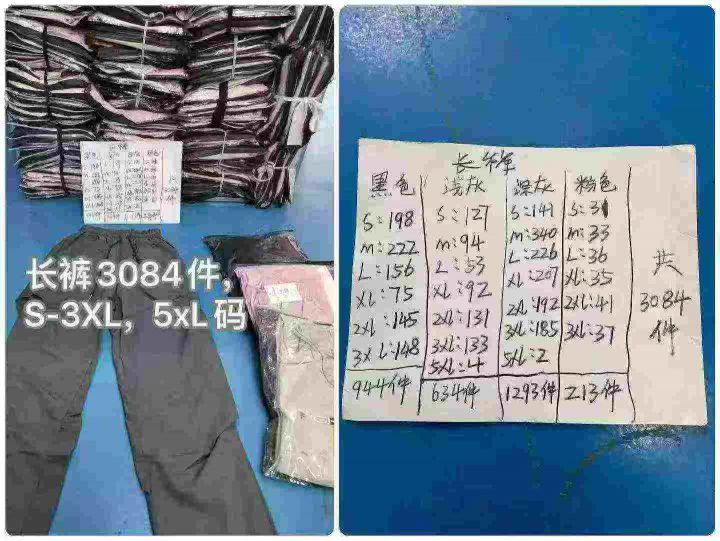 长裤3084件,
S-3XL，5xL码
长裤
黑色 浅灰 深灰 粉色
S:198 S:127 S:141 S:31
m:222 m:94 m:340 m:33
L:156 L:53 L:226 L:36
XL:75 XL:92 XL:207 XL:35
2XL:145 2XL:131 2XL:192 2XL:41
3XL:148 3XL:133 3XL:185 3XL:37
5XL:4 5XL:2
944件 634件 1293件 213件
共
3084
件